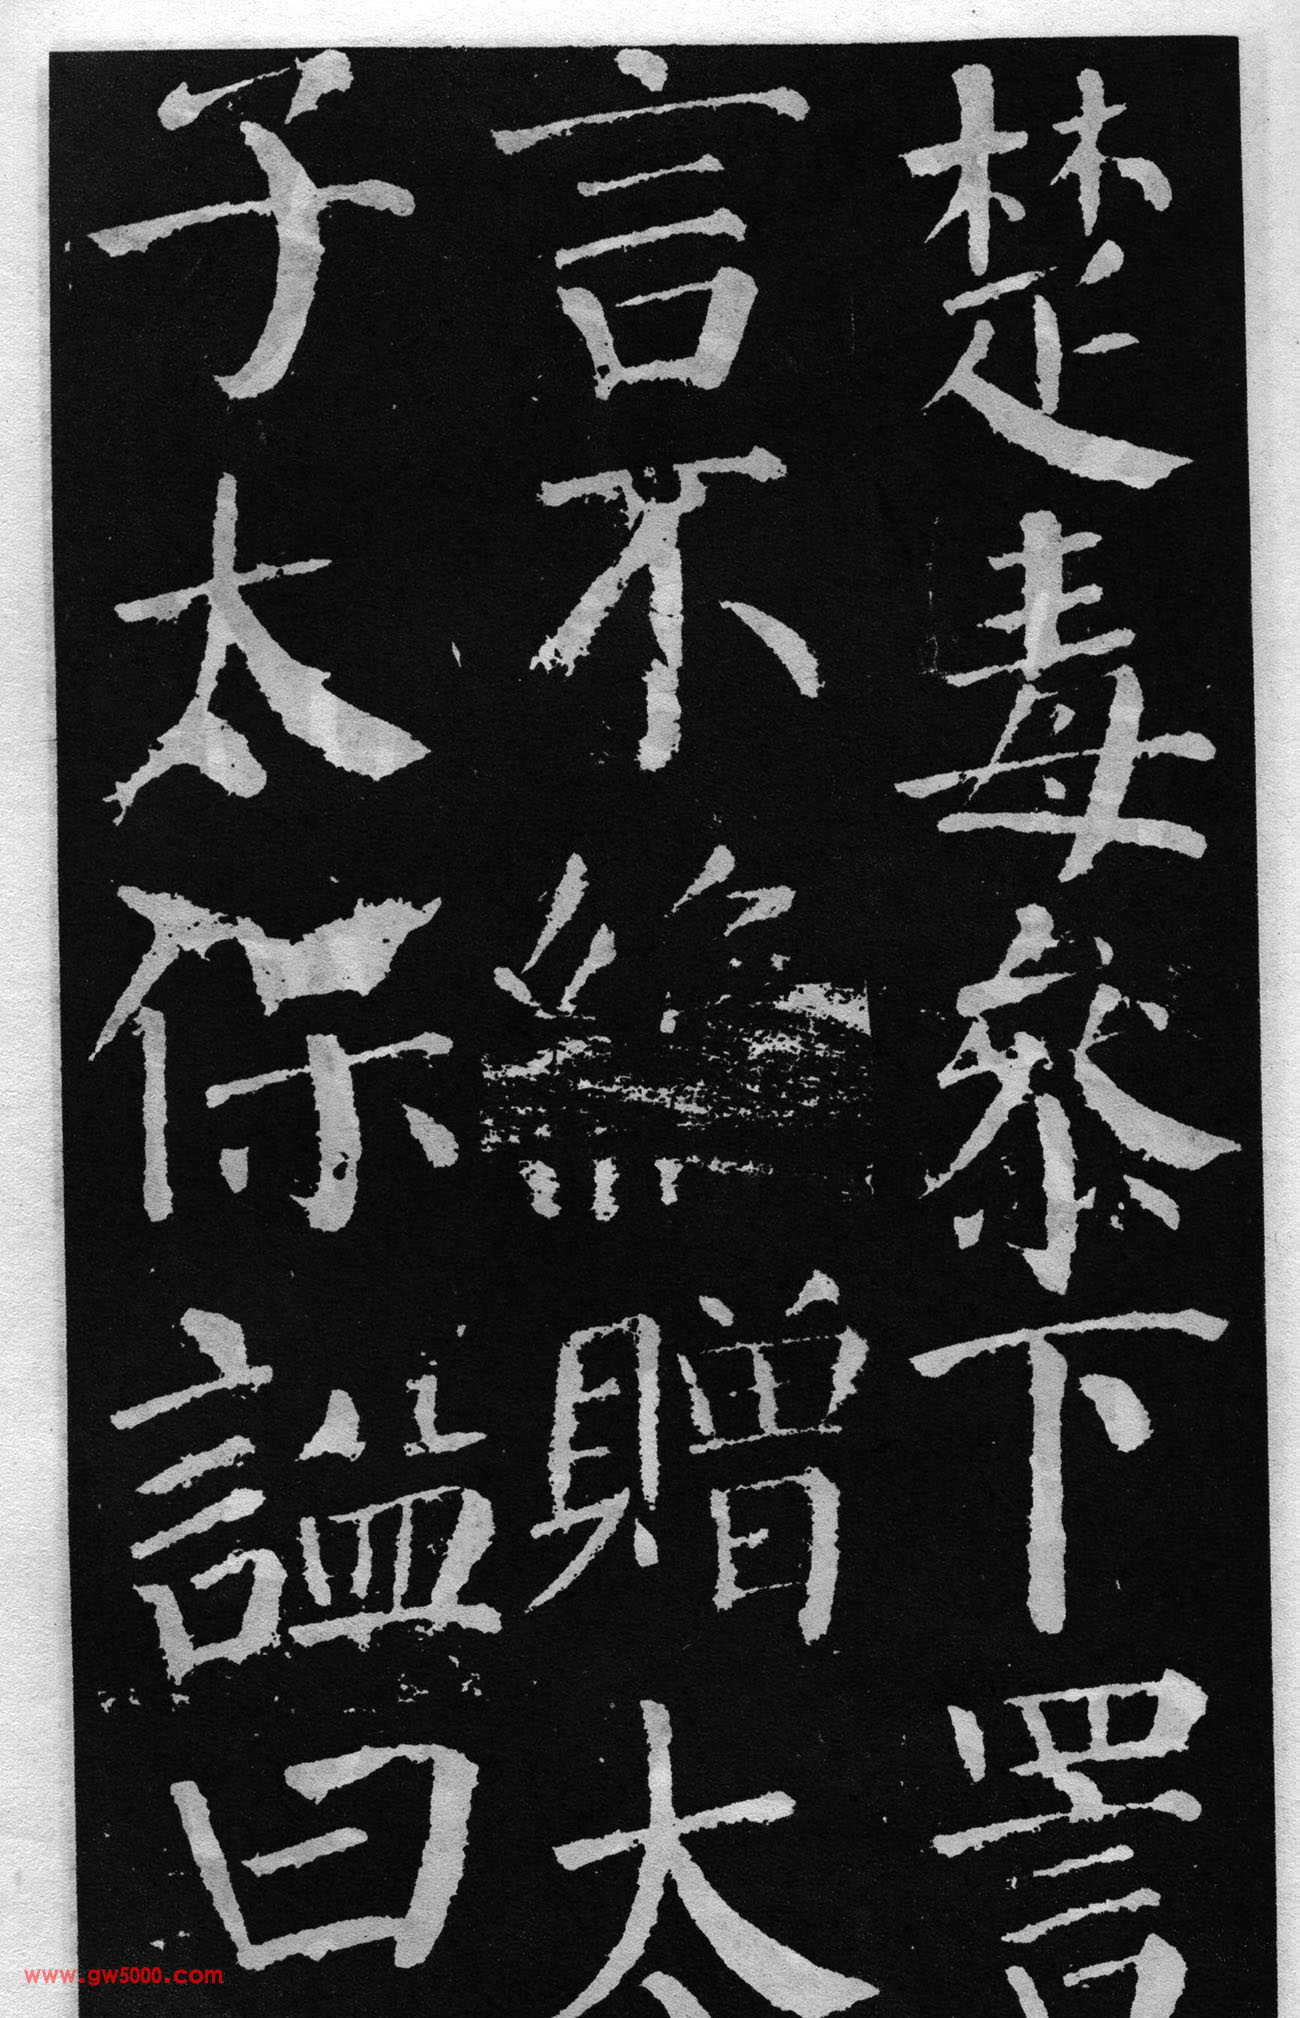 楚毒参下詈
言不絶贈太
子太保謚曰
www.gw5000.com